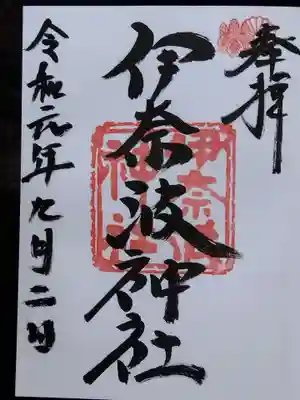 奉拝
伊奈波神社
伊奈波
神社
令和元年九月二日